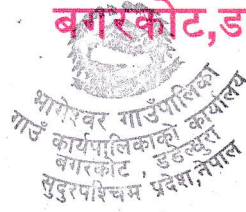 बगरकोट,ड
भागेश्वर गाउँपालिका
गाउँ कार्यपालिकाको कार्यालय
बगरकोट, डडेल्धुरा
सुदुरपश्चिम प्रदेश,नेपाल